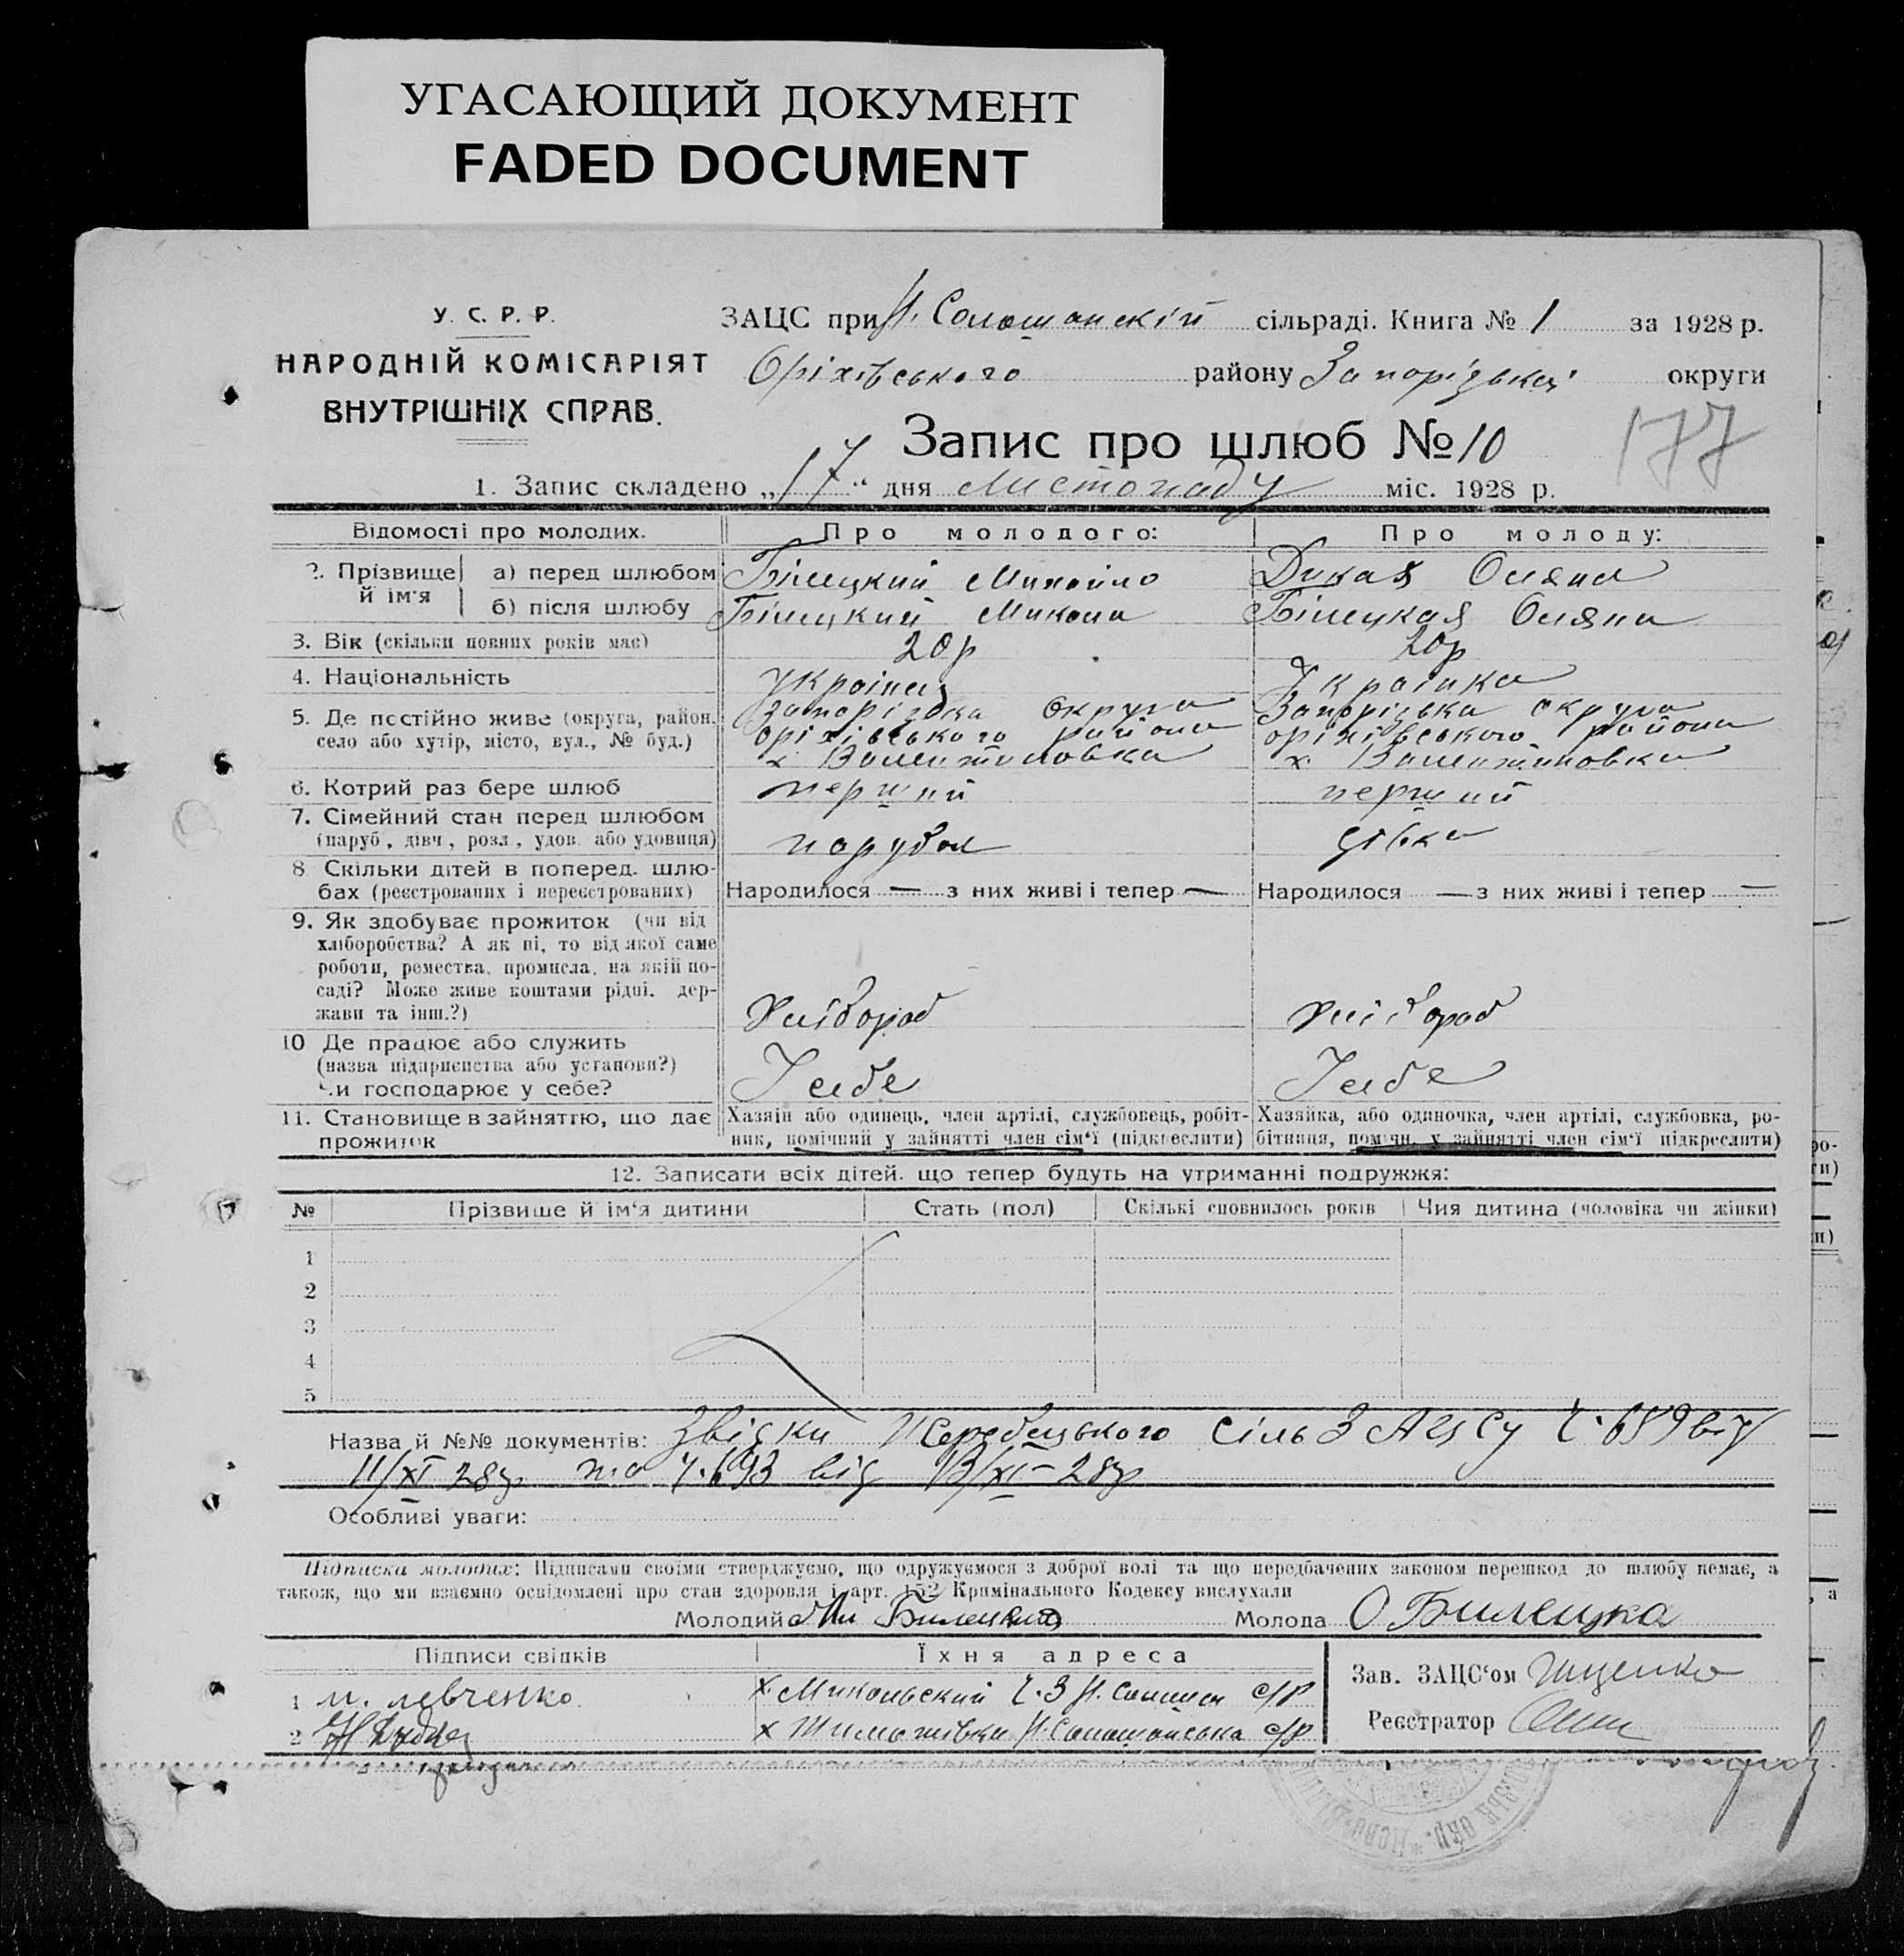 УГАСАЮЩИЙ ДОКУМЕНТ
FADED DOCUMENT
У. С. Р. Р.
НАРОДНІЙ КОМІСАРІЯТ
ВНУТРІШНІХ СПРАВ.
ЗАЦС при Н. Солошанскій сільраді. Книга № 1 за 1928 р.
Оріхівського району Запорізької округи
Запис про шлюб № 10
177
1. Запис складено „17“ дня Листопаду міс. 1928 р.
Відомості про молодих. Про молодого: Про молоду:
2. Прізвище й ім'я а) перед шлюбом Білецкий Михайло Дикая Оляна
б) після шлюбу Білецкий Микола Білецкая Оляна
3. Вік (скільки повних років має) 20р 20р
4. Національність українец Українка
5. Де постійно живе (округа, район, Запорізька округа Запорізька округа
село або хутір, місто, вул., № буд.) оріхівського района оріхівського района
х. Валентиновка х. Валентиновка
6. Котрий раз бере шлюб перший перший
7. Сімейний стан перед шлюбом
(паруб., дівч., розл., удов. або удовиця) парубок дівка
8. Скільки дітей в поперед. шлю-
бах (реєстрованих і нереєстрованих) Народилося — з них живі і тепер — Народилося — з них живі і тепер —
9. Як здобуває прожиток (чи від
хліборобства? А як ні, то від якої саме
роботи, ремества, промисла, на якій по-
саді? Може живе коштами рідні, дер-
жави та інш.?) Хлібороб Хлібороб
10 Де працює або служить
(назва підприємства або установи?)
Чи господарює у себе? У себе У себе
11. Становище в зайняттю, що дає прожиток
Хазяїн або одинець, член артілі, службовець, робіт-
ник, помічний у зайнятті член сім'ї (підкреслити)
Хазяйка, або одиночка, член артілі, службовка, ро-
бітниця, помічн. у зайнятті член сім'ї підкреслити)
12. Записати всіх дітей, що тепер будуть на утриманні подружжя:
№ Прізвище й ім'я дитини Стать (пол) Скількі сповнилось років Чия дитина (чоловіка чи жінки)
1
2
3
4
5
Назва й №№ документів: Звідки Жеребецького сіль ЗАЦСу Ч. 689 від
11/XI 28р та Ч. 693 від 13/XI-28р
Особливі уваги:
Підписка молодих: Підписами своїми стверджуємо, що одружуємося з доброї волі та що передбачених законом перешкод до шлюбу немає, а
також, що ми взаємно освідомлені про стан здоровля і арт. 152 Кримінального Кодексу вислухали
Молодий Билецкий Молода О Билецка
Підписи свідків Їхня адреса
1 М. Левченко х Микольский Ч. 3 Н. с/р
2 х Тимошівка Н. Солошанська с/р
Зав. ЗАЦС'ом Іщенко
Реєстратор